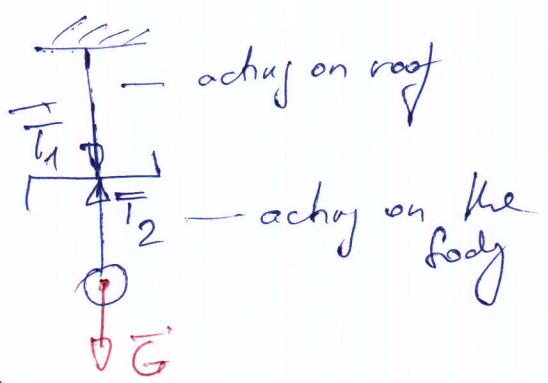 acting on roof
T₁
T₂
acting on the
body
G